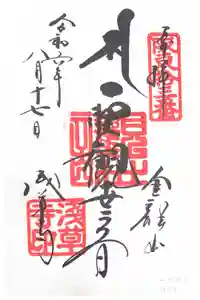 奉拝
坂東拾三番
金龍山
聖観世音
浅草寺
浅草寺印
令和六年
八月十七日